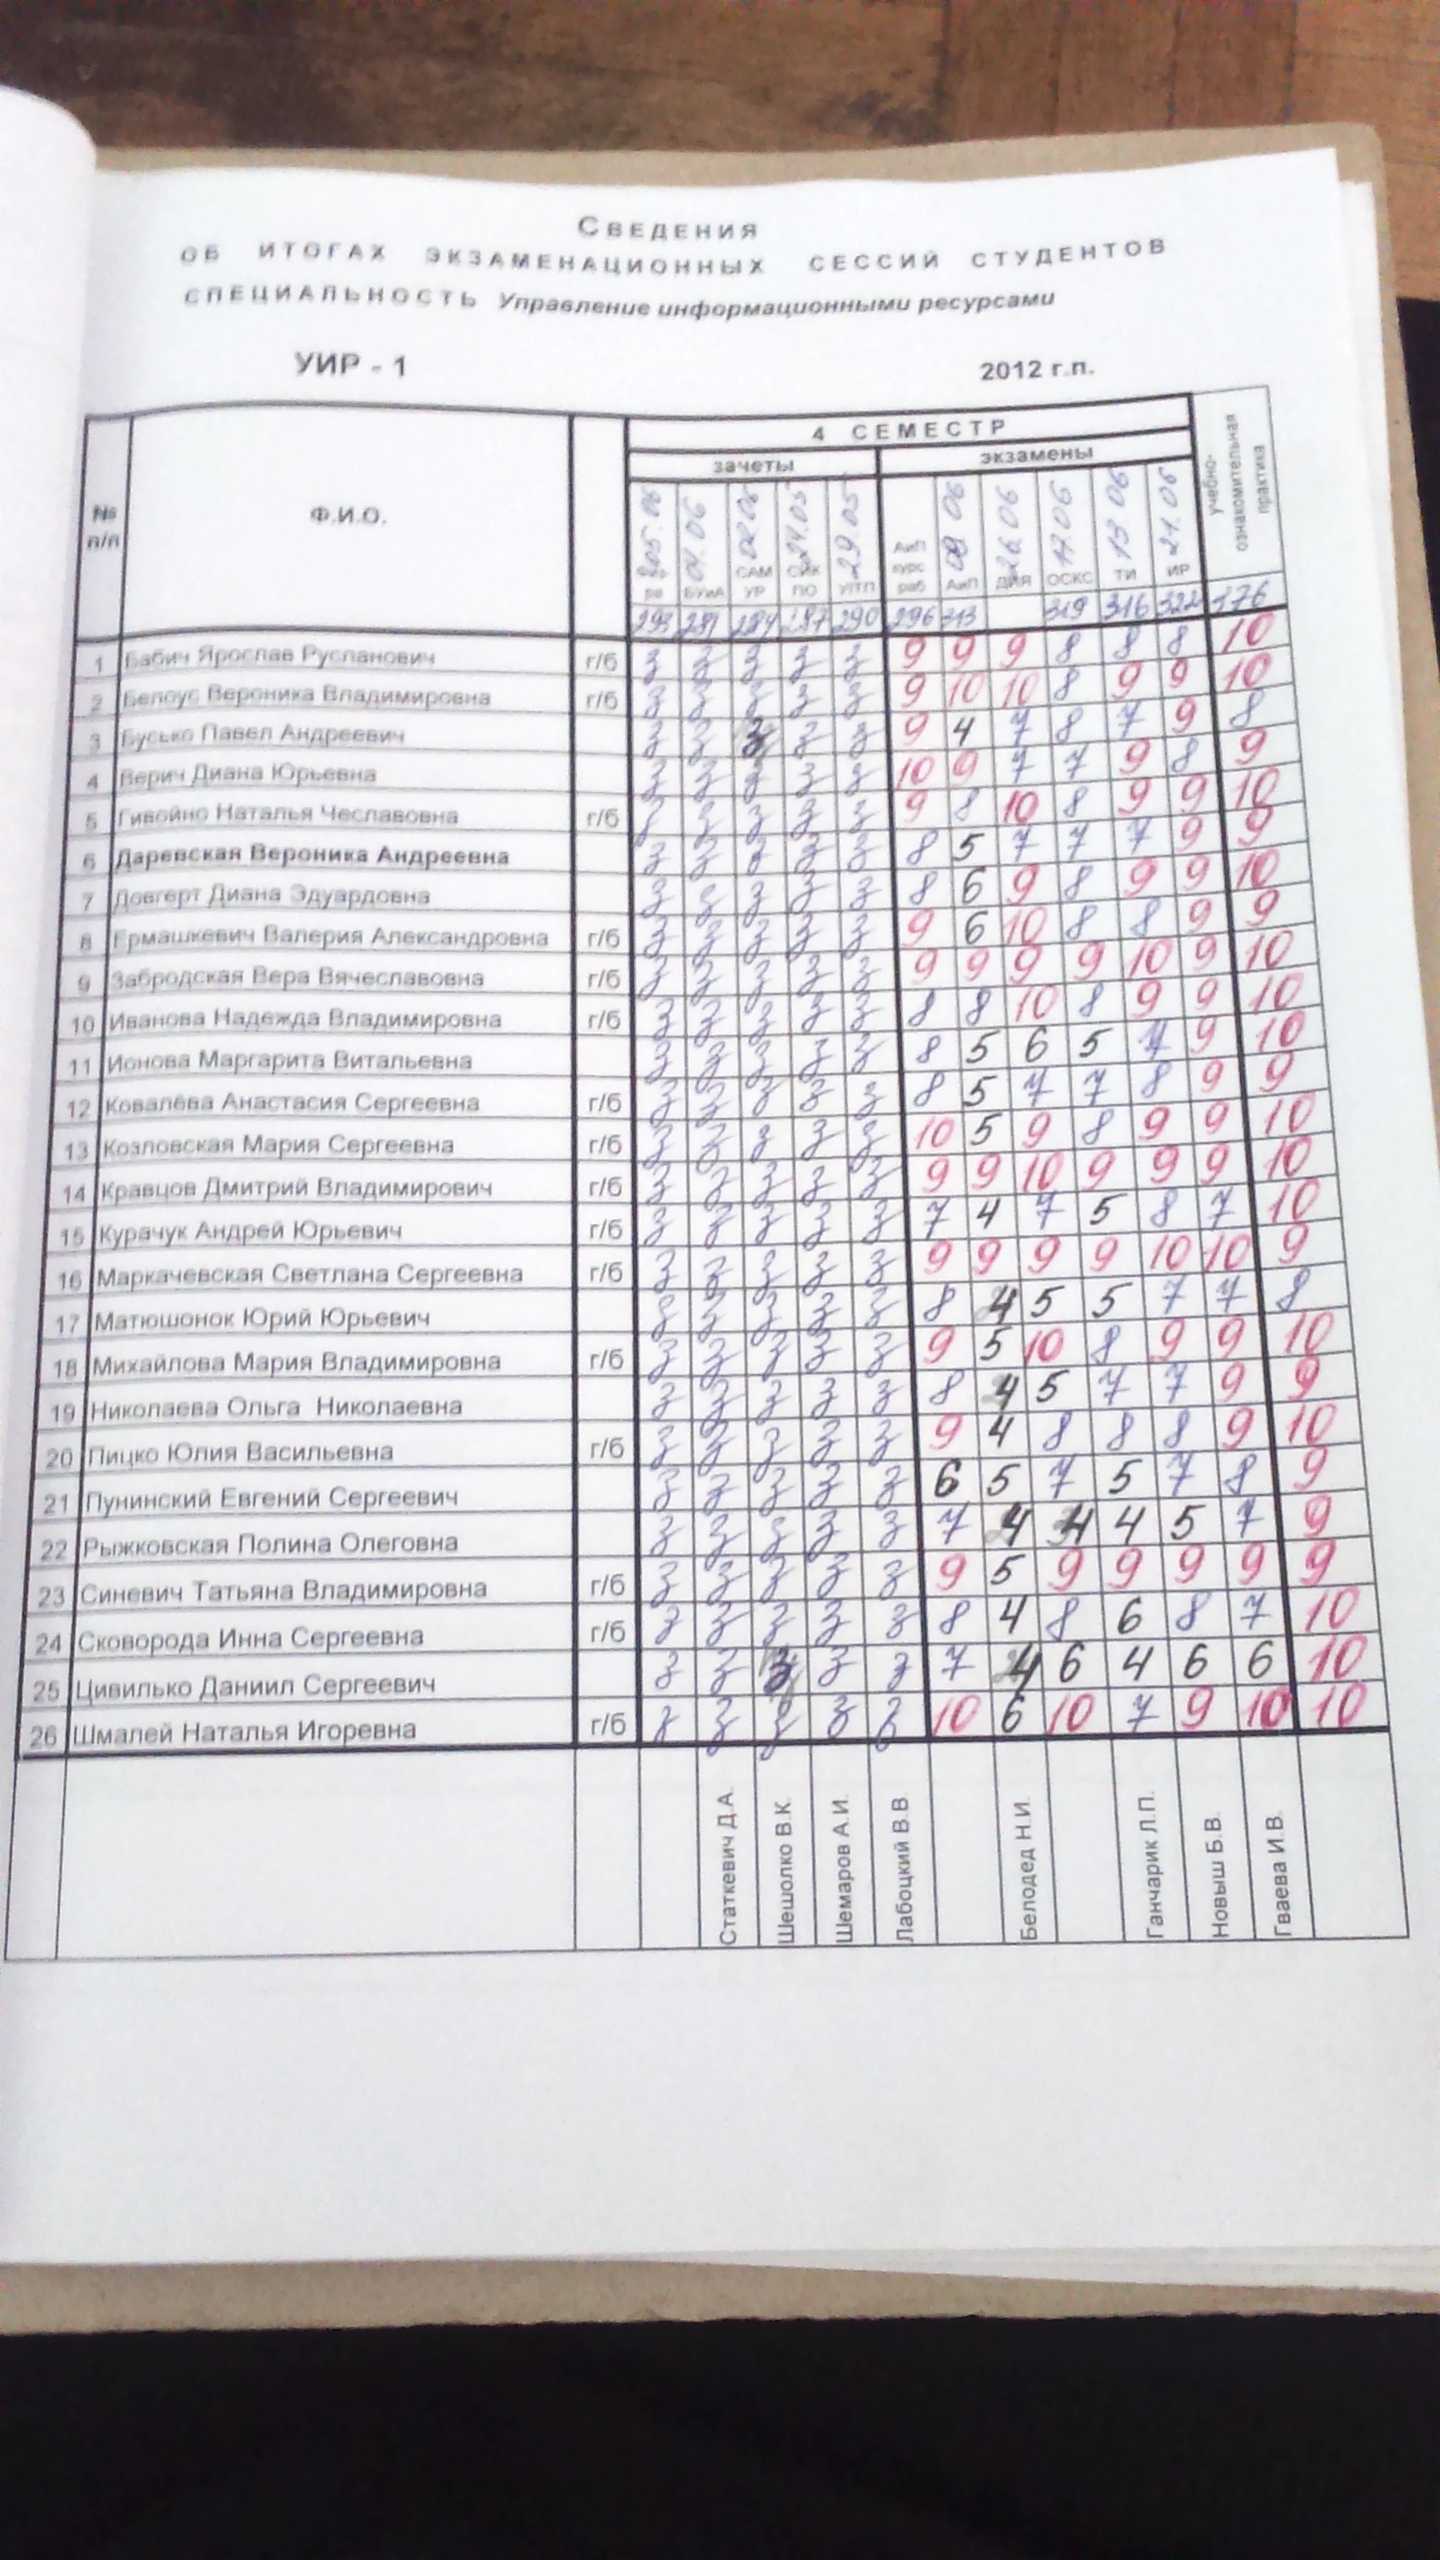 СВЕДЕНИЯ
ОБ ИТОГАХ ЭКЗАМЕНАЦИОННЫХ СЕССИЙ СТУДЕНТОВ
СПЕЦИАЛЬНОСТЬ Управление информационными ресурсами
УИР - 1 2012 г.п.
4 СЕМЕСТР
зачеты экзамены
№ п/п Ф.И.О. учебно-ознакомительная практика
05.06 01.06 02.06 24.05 29.05 09.06 26.06 17.06 13.06 21.06
Физ-ра БУиА САМ УР СИК ПО УПП АиП курс раб АиП ДИЯ ОСКС ТИ ИР
293 281 284 287 290 296 313 319 316 322 176
1 Бабич Ярослав Русланович г/б з з з з з 9 9 9 8 8 8 10
2 Белоус Вероника Владимировна г/б з з з з з 9 10 10 8 9 9 10
3 Бусько Павел Андреевич з з з з з 9 4 7 8 7 9 8
4 Верич Диана Юрьевна з з з з з 10 9 7 7 9 8 9
5 Гивойно Наталья Чеславовна г/б з з з з з 9 8 10 8 9 9 10
6 Даревская Вероника Андреевна з з з з з 8 5 7 7 7 9 9
7 Довгерт Диана Эдуардовна з з з з з 8 6 9 8 9 9 10
8 Ермашкевич Валерия Александровна г/б з з з з з 9 6 10 8 8 9 9
9 Забродская Вера Вячеславовна г/б з з з з з 9 9 9 9 10 9 10
10 Иванова Надежда Владимировна г/б з з з з з 8 8 10 8 9 9 10
11 Ионова Маргарита Витальевна з з з з з 8 5 6 5 7 9 10
12 Ковалёва Анастасия Сергеевна г/б з з з з з 8 5 7 7 8 9 9
13 Козловская Мария Сергеевна г/б з з з з з 10 5 9 8 9 9 10
14 Кравцов Дмитрий Владимирович г/б з з з з з 9 9 10 9 9 9 10
15 Курачук Андрей Юрьевич г/б з з з з з 7 4 7 5 8 7 10
16 Маркачевская Светлана Сергеевна г/б з з з з з 9 9 9 9 10 10 9
17 Матюшонок Юрий Юрьевич з з з з з 8 4 5 5 7 7 8
18 Михайлова Мария Владимировна г/б з з з з з 9 5 10 8 9 9 10
19 Николаева Ольга Николаевна з з з з з 8 4 5 7 7 9 9
20 Пицко Юлия Васильевна г/б з з з з з 9 4 8 8 8 9 10
21 Пунинский Евгений Сергеевич з з з з з 6 5 7 5 7 8 9
22 Рыжковская Полина Олеговна з з з з з 7 4 4 4 5 7 9
23 Синевич Татьяна Владимировна г/б з з з з з 9 5 9 9 9 9 9
24 Сковорода Инна Сергеевна г/б з з з з з 8 4 8 6 8 7 10
25 Цивилько Даниил Сергеевич з з з з з 7 4 6 4 6 6 10
26 Шмалей Наталья Игоревна г/б з з з з з 10 6 10 7 9 10 10
Статкевич Д.А. Шешолко В.К. Шемаров А.И. Лабоцкий В.В Белодед Н.И. Ганчарик Л.П. Новыш Б.В. Гваева И.В.